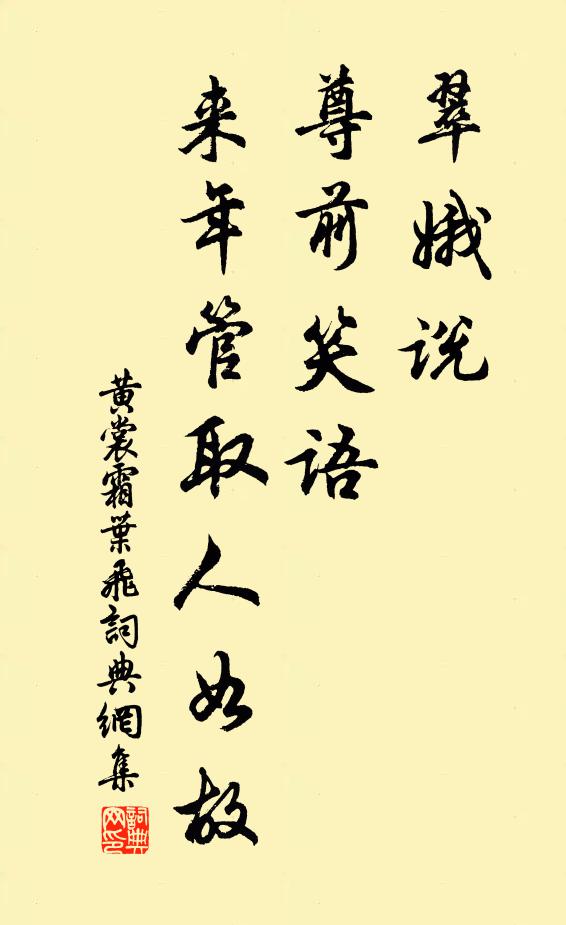 翠娥说
尊前笑语
来年管取人如故
黄裳霜葉飛詞典網集
詞典网印